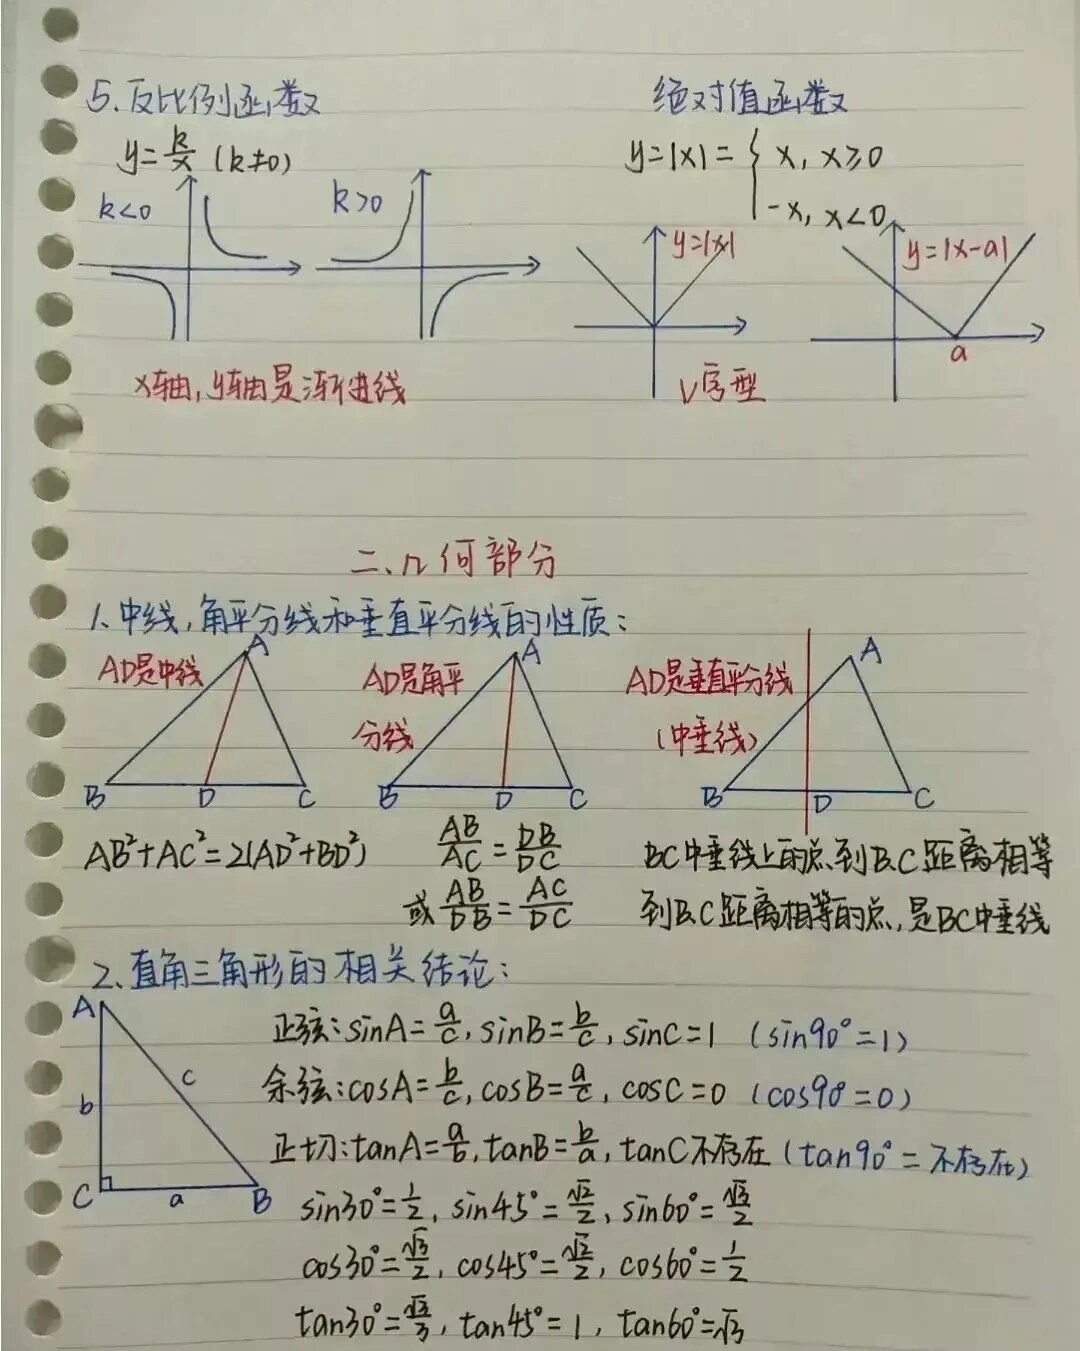 5.反比例函数
y=k/x (k≠0)
k<0
k>0
x轴,y轴是渐进线
绝对值函数
y=|x|={ x, x≥0
-x, x<0
y=|x|
y=|x-a|
a
V字型
二、几何部分
1、中线,角平分线和垂直平分线的性质:
AD是中线
A
B
D
C
AD是角平
分线
A
B
D
C
AD是垂直平分线
(中垂线)
A
B
D
C
AB²+AC²=2(AD²+BD²)
AB/AC=DB/DC
或AB/DB=AC/DC
BC中垂线上的点到B.C距离相等
到B.C距离相等的点,是BC中垂线
2、直角三角形的相关结论:
A
b
c
C
a
B
正弦:sinA=a/c,sinB=b/c,sinC=1 (sin90°=1)
余弦:cosA=b/c,cosB=a/c,cosC=0 (cos90°=0)
正切:tanA=a/b,tanB=b/a,tanC不存在(tan90°=不存在)
sin30°=1/2,sin45°=√2/2,sin60°=√3/2
cos30°=√3/2,cos45°=√2/2,cos60°=1/2
tan30°=√3/3,tan45°=1,tan60°=√3